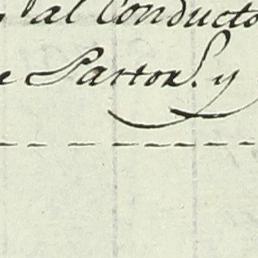 al Conducto
e Parton. y